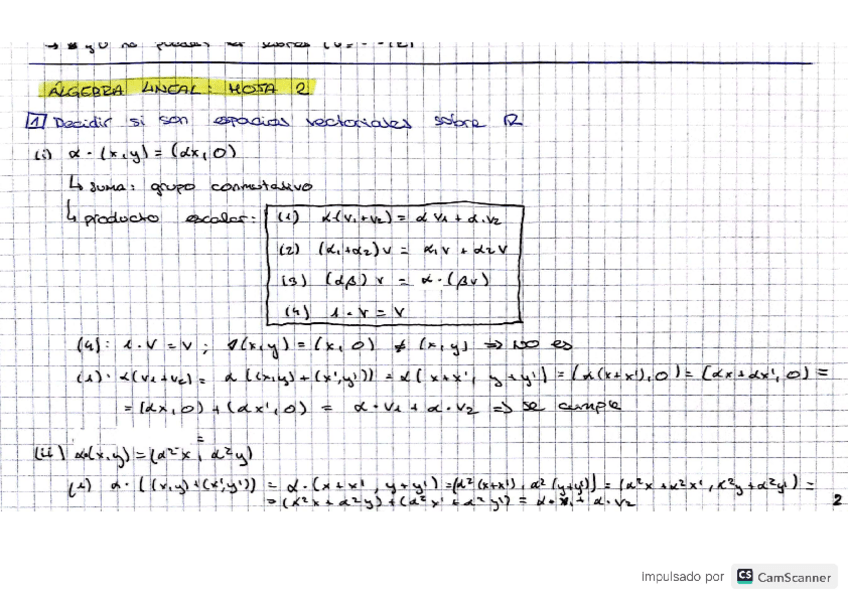 ÁLGEBRA LINEAL: HOJA 2
1 Decidir si son espacios vectoriales sobre ℝ
(i) α·(x,y)=(αx,0)
↳ suma: grupo conmutativo
↳ producto escalar: (1) α(v₁+v₂)= α v₁+α·v₂
(2) (α₁+α₂)v = α₁v + α₂v
(3) (αβ) v = α·(βv)
(4) 1·v = v
(4): 1·v = v ; 1(x,y)=(x,0) ≠ (x,y) ⇒ NO es
(1): α(v₁+v₂)= α((x,y)+(x',y')) = α(x+x', y+y') = (α(x+x'),0) = (αx+αx',0) =
= (αx,0)+(αx',0) = α·v₁+α·v₂ ⇒ se cumple
(ii) α(x,y)=(α²x, α²y)
(1) α·((x,y)+(x',y')) = α·(x+x', y+y') =(α²(x+x'), α²(y+y')) = (α²x+α²x', α²y+α²y') =
= (α²x+α²y)+(α²x'+α²y') = α·v₁+α·v₂
2
Impulsado por CS CamScanner